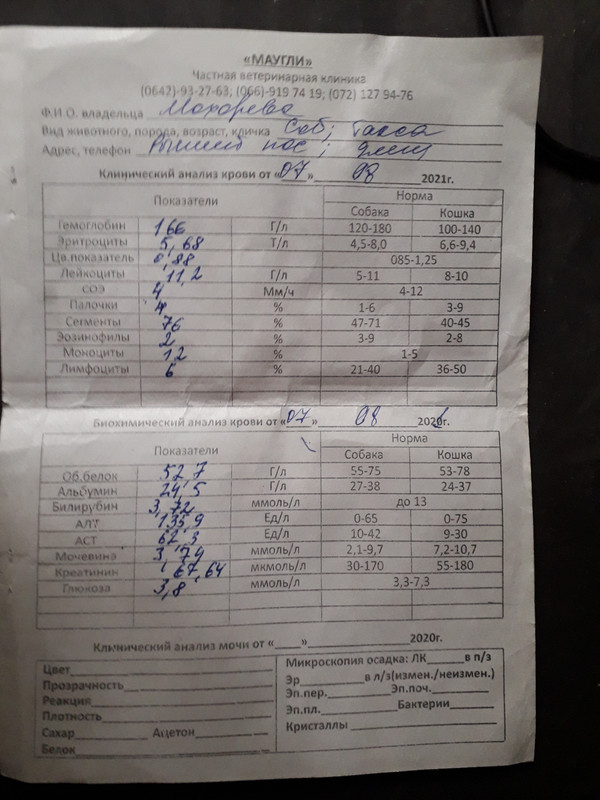 «МАУГЛИ»
Частная ветеринарная клиника
(0642)-93-27-63; (066)-919 74 19; (072) 127 94-76
Ф.И.О. владельца
Вид животного, порода, возраст, кличка Соб; Такса
Адрес, телефон
Клинический анализ крови от «07» 08 2021г.
Показатели Норма
Собака Кошка
Гемоглобин 166 Г/л 120-180 100-140
Эритроциты 5,68 Т/л 4,5-8,0 6,6-9,4
Цв.показатель 0,88 085-1,25
Лейкоциты 11,2 Г/л 5-11 8-10
СОЭ 4 Мм/ч 4-12
Палочки 4 % 1-6 3-9
Сегменты 76 % 47-71 40-45
Эозинофилы 2 % 3-9 2-8
Моноциты 12 % 1-5
Лимфоциты 6 % 21-40 36-50
Биохимический анализ крови от «07» 08
Показатели Норма
Собака Кошка
Об.белок 52,7 Г/л 55-75 53-78
Альбумин 24,5 Г/л 27-38 24-37
Билирубин 3,72 ммоль/л до 13
АЛТ 135,9 Ед/л 0-65 0-75
АСТ 62,3 Ед/л 10-42 9-30
Мочевина 3,79 ммоль/л 2,1-9,7 7,2-10,7
Креатинин 67,64 мкмоль/л 30-170 55-180
Глюкоза 3,8 ммоль/л 3,3-7,3
Клинический анализ мочи от «____»____ 2020г.
Цвет
Прозрачность
Реакция
Плотность
Сахар Ацетон
Белок
Микроскопия осадка: ЛК в п/з
Эр в л/з(измен./неизмен.)
Эп.пер. Эп.поч.
Эп.пл. Бактерии
Кристаллы